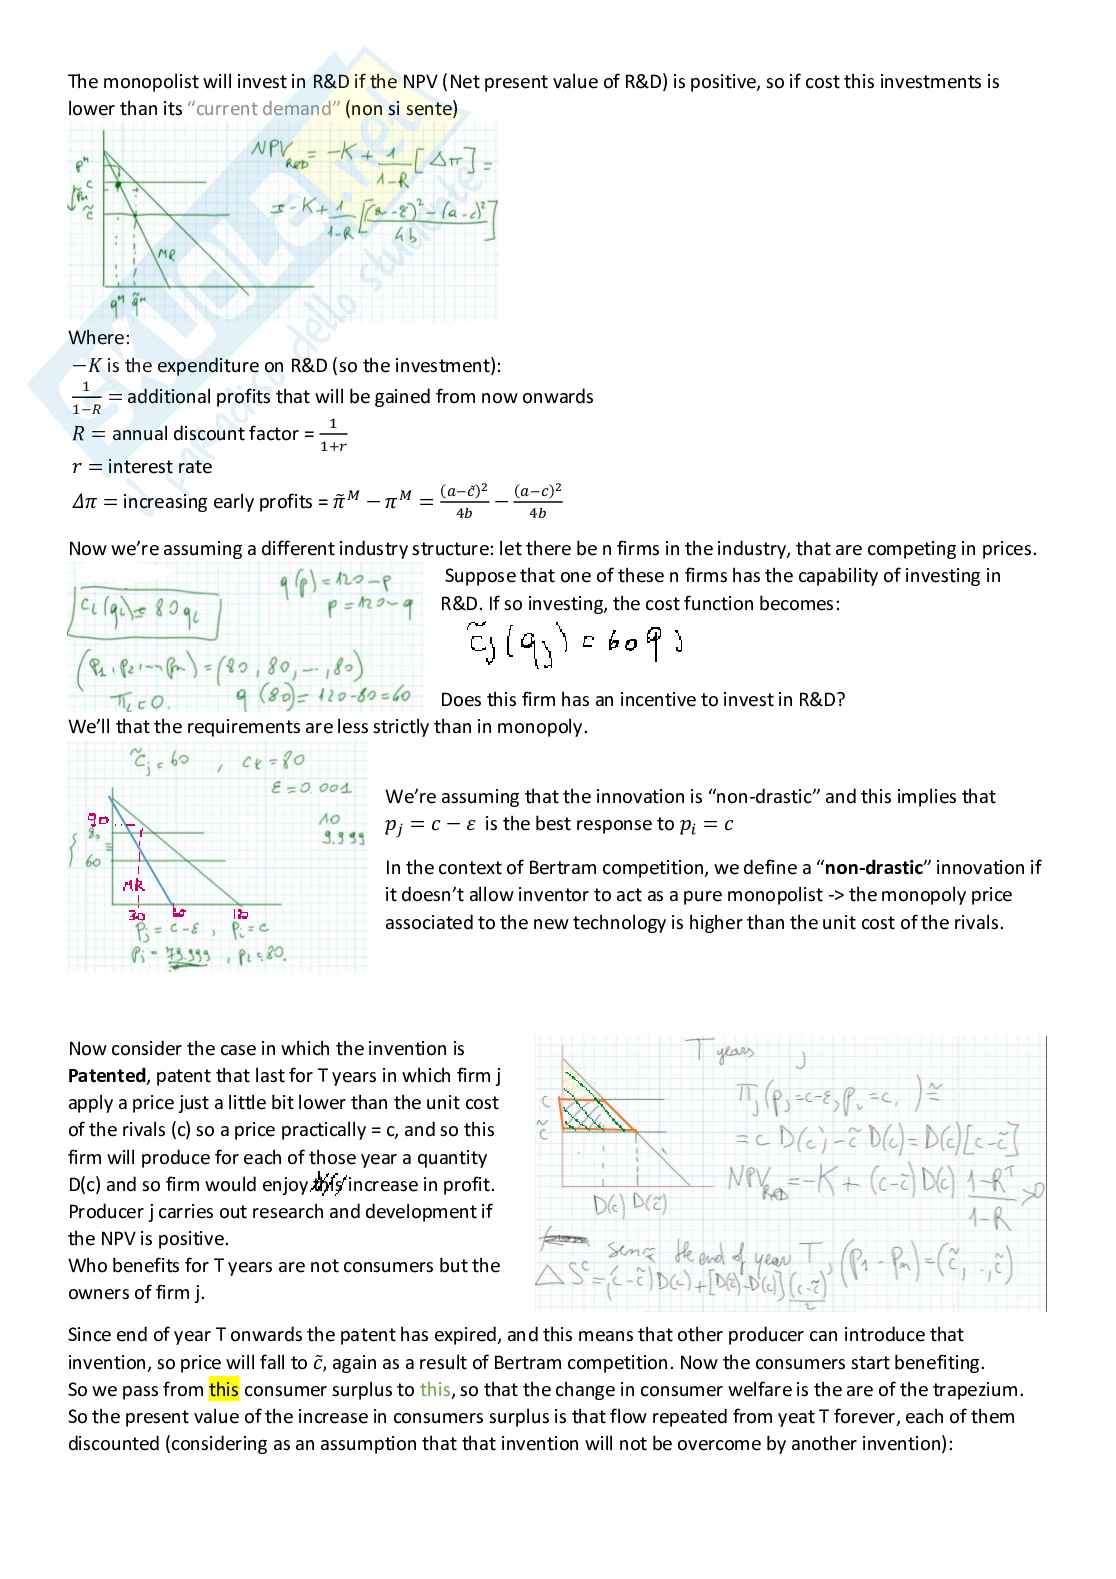 The monopolist will invest in R&D if the NPV (Net present value of R&D) is positive, so if cost this investments is
lower than its “current demand” (non si sente)
NPV R&D = -K + 1/(1-R) [Δπ] =
= -K + 1/(1-R) [((a-c̃)² - (a-c)²)/4b]
pᴹ
c
p̃ᴹ
c̃
MR
qᴹ q̃ᴹ
Where:
−K is the expenditure on R&D (so the investment):
1/(1−R) = additional profits that will be gained from now onwards
R = annual discount factor = 1/(1+r)
r = interest rate
Δπ = increasing early profits = π̃ᴹ − πᴹ = (a−c̃)²/4b − (a−c)²/4b
Now we’re assuming a different industry structure: let there be n firms in the industry, that are competing in prices.
q(p) = 120-p
p = 120-q
ci(qi) = 80qi
(p1, p2, ... pn) = (80, 80, ..., 80)
πi = 0. q(80) = 120-80 = 60
Suppose that one of these n firms has the capability of investing in
R&D. If so investing, the cost function becomes:
c̃j(qj) = 60qj
Does this firm has an incentive to invest in R&D?
We’ll that the requirements are less strictly than in monopoly.
c̃j = 60 , ck = 80
ε = 0.001
10
9.999
90
80
60
MR
30 60 120
pj = c-ε , pi = c
pj = 79.999 , pi = 80.
We’re assuming that the innovation is “non-drastic” and this implies that
pj = c − ε is the best response to pi = c
In the context of Bertram competition, we define a “non-drastic” innovation if
it doesn’t allow inventor to act as a pure monopolist -> the monopoly price
associated to the new technology is higher than the unit cost of the rivals.
Now consider the case in which the invention is
Patented, patent that last for T years in which firm j
apply a price just a little bit lower than the unit cost
of the rivals (c) so a price practically = c, and so this
firm will produce for each of those year a quantity
D(c) and so firm would enjoy this increase in profit.
Producer j carries out research and development if
the NPV is positive.
Who benefits for T years are not consumers but the
owners of firm j.
T years j
c
c̃
D(c) D(c̃)
πj(pj = c-ε, pi = c, ) ≅
= c D(c) - c̃ D(c) = D(c)[c-c̃]
NPV R&D = -K + (c-c̃) D(c) (1-Rᵀ)/(1-R) > 0
since the end of year T, (p1 - pn) = (c̃, -, c̃)
ΔSᶜ = (c-c̃) D(c) + [D(c̃) - D(c)] (c-c̃)/2
Since end of year T onwards the patent has expired, and this means that other producer can introduce that
invention, so price will fall to c̃, again as a result of Bertram competition. Now the consumers start benefiting.
So we pass from this consumer surplus to this, so that the change in consumer welfare is the are of the trapezium.
So the present value of the increase in consumers surplus is that flow repeated from yeat T forever, each of them
discounted (considering as an assumption that that invention will not be overcome by another invention):
SKUOLA.net
il paradiso dello studente